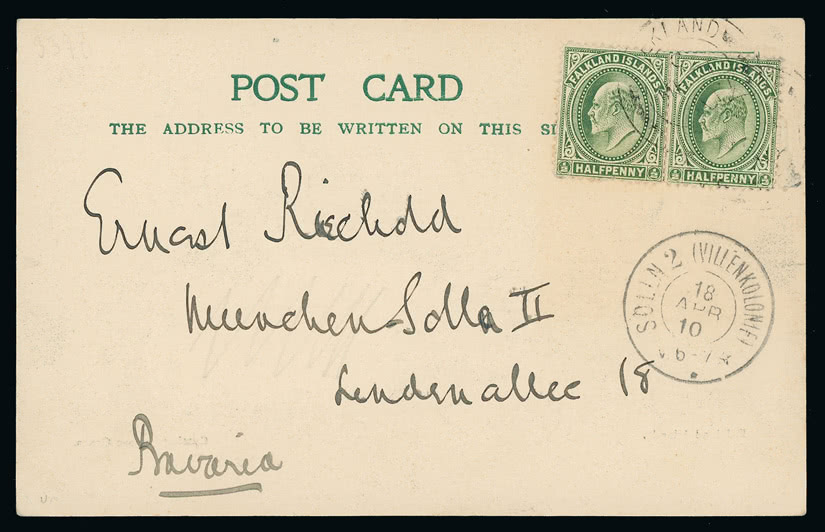 POST CARD
THE ADDRESS TO BE WRITTEN ON THIS SI
FALKLAND ISLANDS
HALFPENNY
FALKLAND ISLANDS
HALFPENNY
KLAND
Ernast Riechold
Muenchen-Solln II
Lindenallee 18
Bavaria
SOLLN 2 (VILLENKOLONIE)
18
APR
10